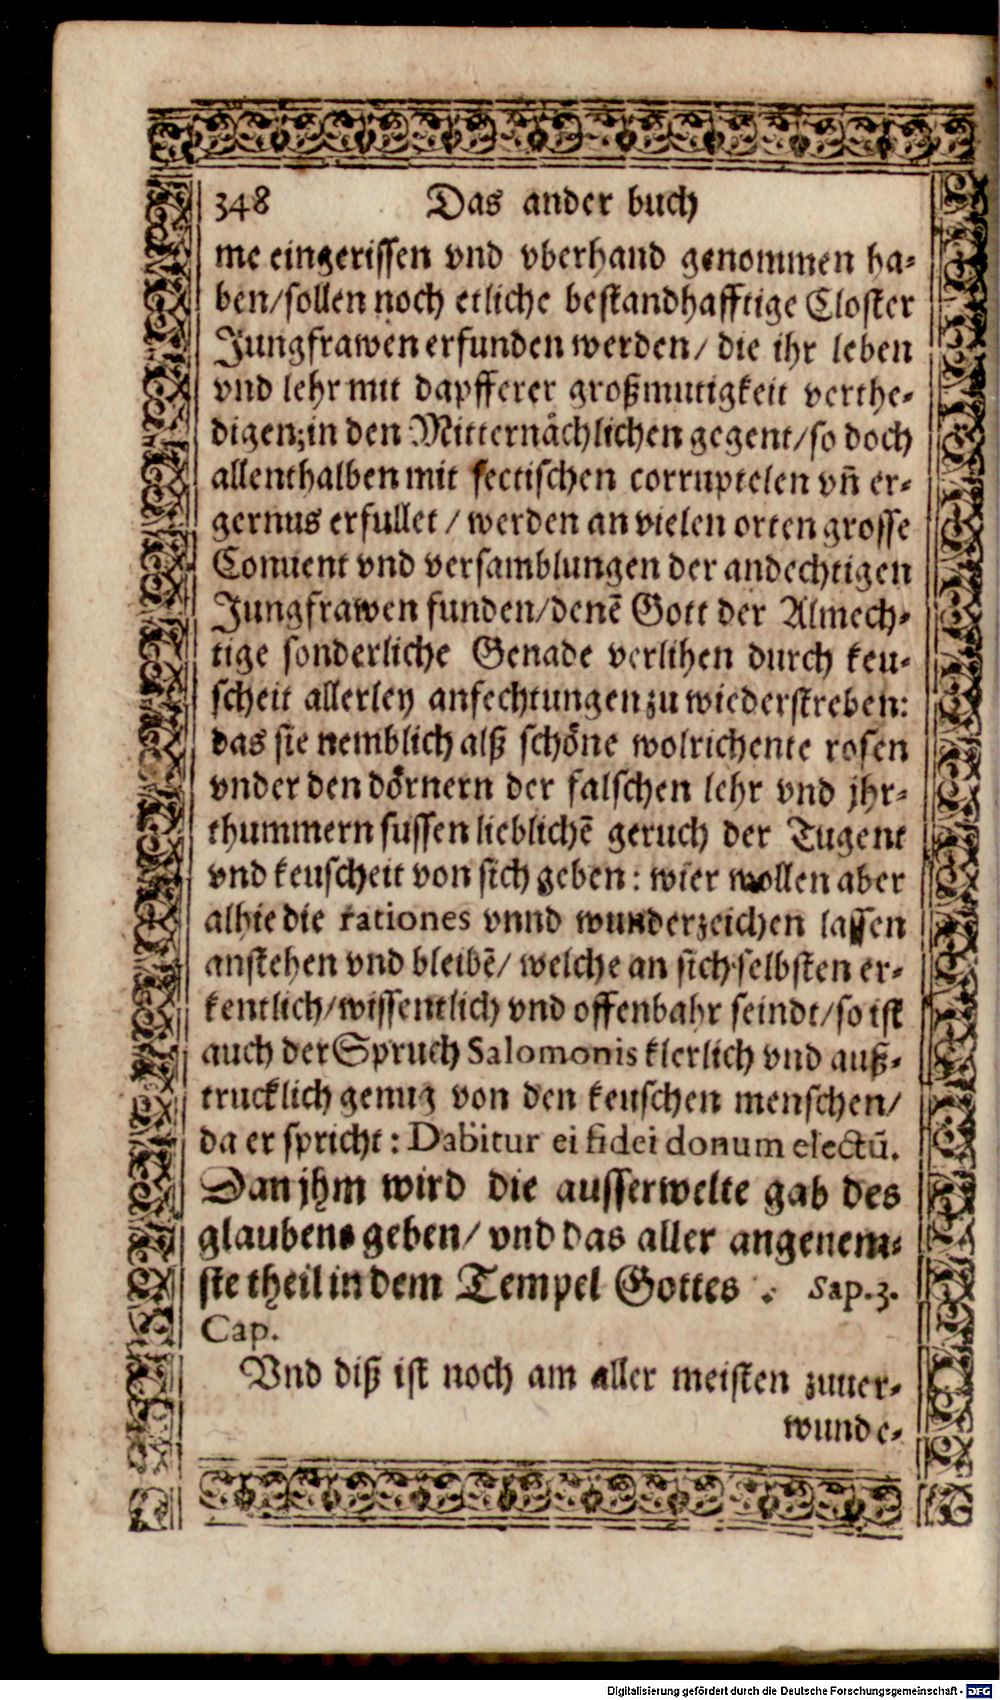 348 Das ander buch
me eingerissen vnd vberhand genommen ha-
ben/sollen noch etliche bestandhafftige Closter
Jungfrawen erfunden werden/ die ihr leben
vnd lehr mit dapfferer großmutigkeit verthe-
digen; in den Mitternächlichen gegent/so doch
allenthalben mit sectischen corruptelen vñ er-
gernus erfullet / werden an vielen orten grosse
Conuent vnd versamblungen der andechtigen
Jungfrawen funden/denē Gott der Almech-
tige sonderliche Genade verlihen durch keu-
scheit allerley anfechtungen zu wiederstreben:
das sie nemblich alß schöne wolrichente rosen
vnder den dörnern der falschen lehr vnd jhr-
thummern sussen lieblichē geruch der Tugent
vnd keuscheit von sich geben: wier wollen aber
alhie die rationes vnnd wunderzeichen lassen
anstehen vnd bleibē/ welche an sich selbsten er-
kentlich/wissentlich vnd offenbahr seindt/so ist
auch der Spruch Salomonis klerlich vnd auß-
trucklich genug von den keuschen menschen/
da er spricht: Dabitur ei fidei donum electū.
Dan jhm wird die ausserwelte gab des
glaubens geben/ vnd das aller angenem-
ste theil in dem Tempel Gottes . Sap. 3.
Cap.
Vnd diß ist noch am aller meisten zuuer-
wunde-
Digitalisierung gefördert durch die Deutsche Forschungsgemeinschaft - DFG